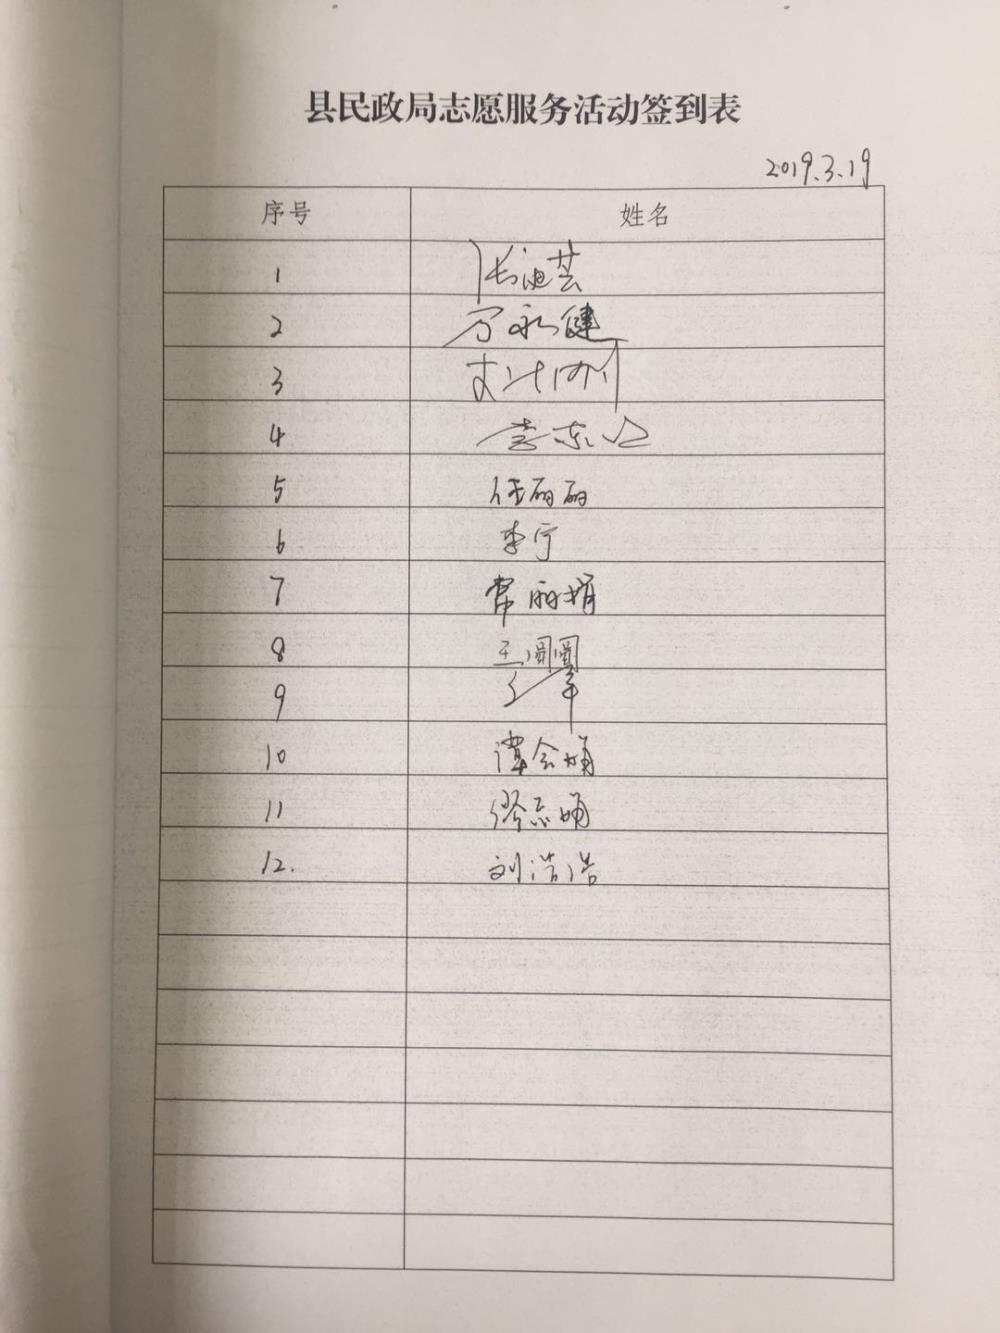 县民政局志愿服务活动签到表
2019.3.19
序号 姓名
1 张迪芸
2 万永健
3
4
5 任丽丽
6 李宁
7 常丽娟
8 王圆圆
9
10 谭会娟
11 缪志娟
12. 刘浩浩